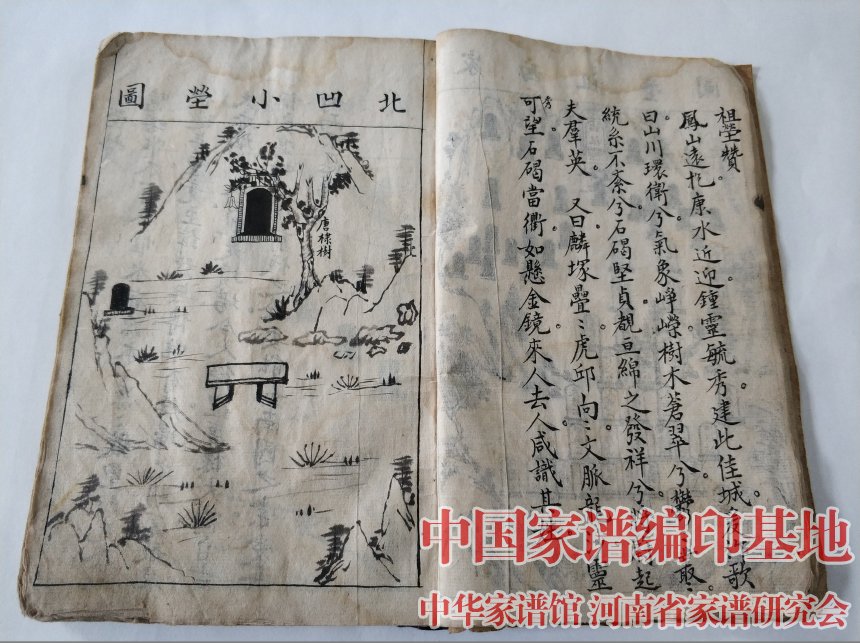 祖塋贊。
鳳山遠抱。康水近迎。鍾靈毓秀。建此佳城。歌
曰山川環衛兮。氣象崢嶸。樹木蒼翠兮。
統系不紊兮。石碣堅貞。覩亘綿之發祥兮。起
夫羣英。又曰麟塚疊〻。虎邱向〻。文脈靈
秀可望。石碣當衢。如懸金鏡。來人去人。咸識其
北凹小塋圖
唐棣樹
中国家谱编印基地
中华家谱馆 河南省家谱研究会